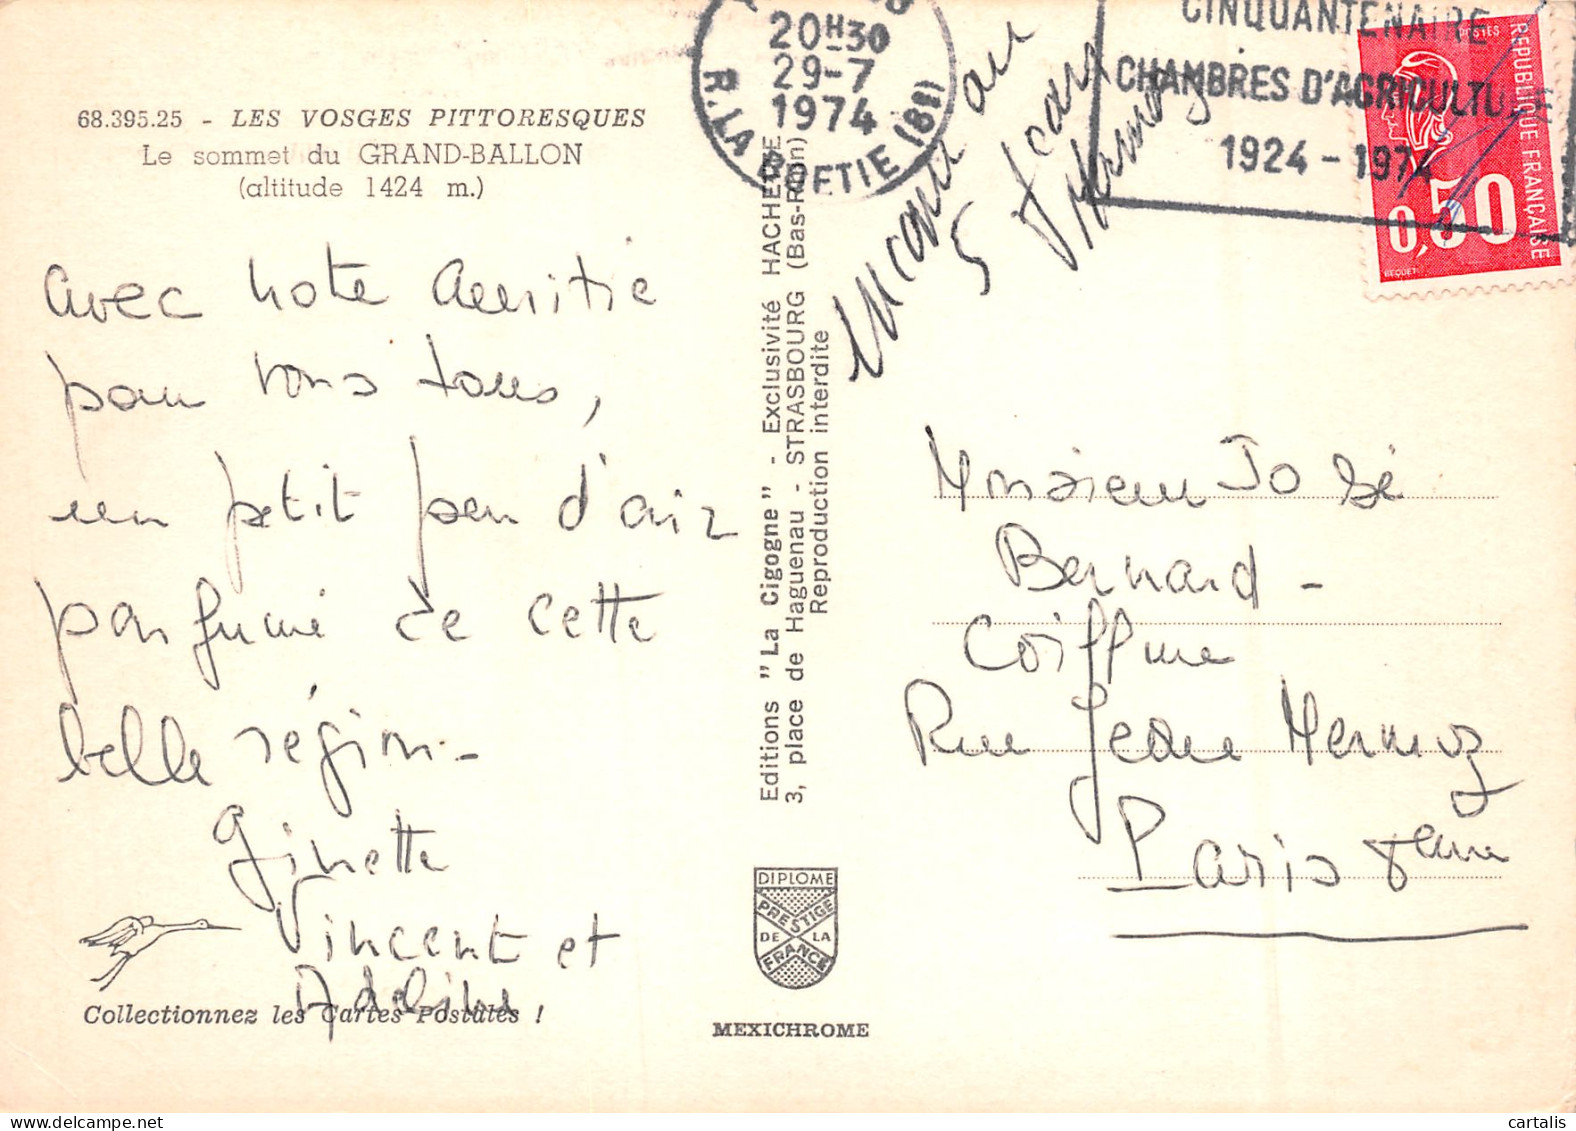 68.395.25 - LES VOSGES PITTORESQUES
Le sommet du GRAND-BALLON
(altitude 1424 m.)
avec notre amitié
pour vous tous,
un petit peu d'air
parfumé de cette
belle région -
Ginette
Vincent et
Adeline
Collectionnez les Cartes Postales !
Editions "La Cigogne" - Exclusivité HACHETTE
3, place de Haguenau - STRASBOURG (Bas-Rhin)
Reproduction interdite
DIPLOME
PRESTIGE
DE LA
FRANCE
MEXICHROME
20H30
29-7
1974
R. LA BOETIE (8e)
CINQUANTENAIRE
CHAMBRES D'AGRICULTURE
1924 - 1974
POSTES
REPUBLIQUE FRANÇAISE
0,50
BEQUET
inconnu au
5 Jean
Mermoz
Monsieur José
Bernard -
Coiffure
Rue Jean Mermoz
Paris 8eme
cartalis